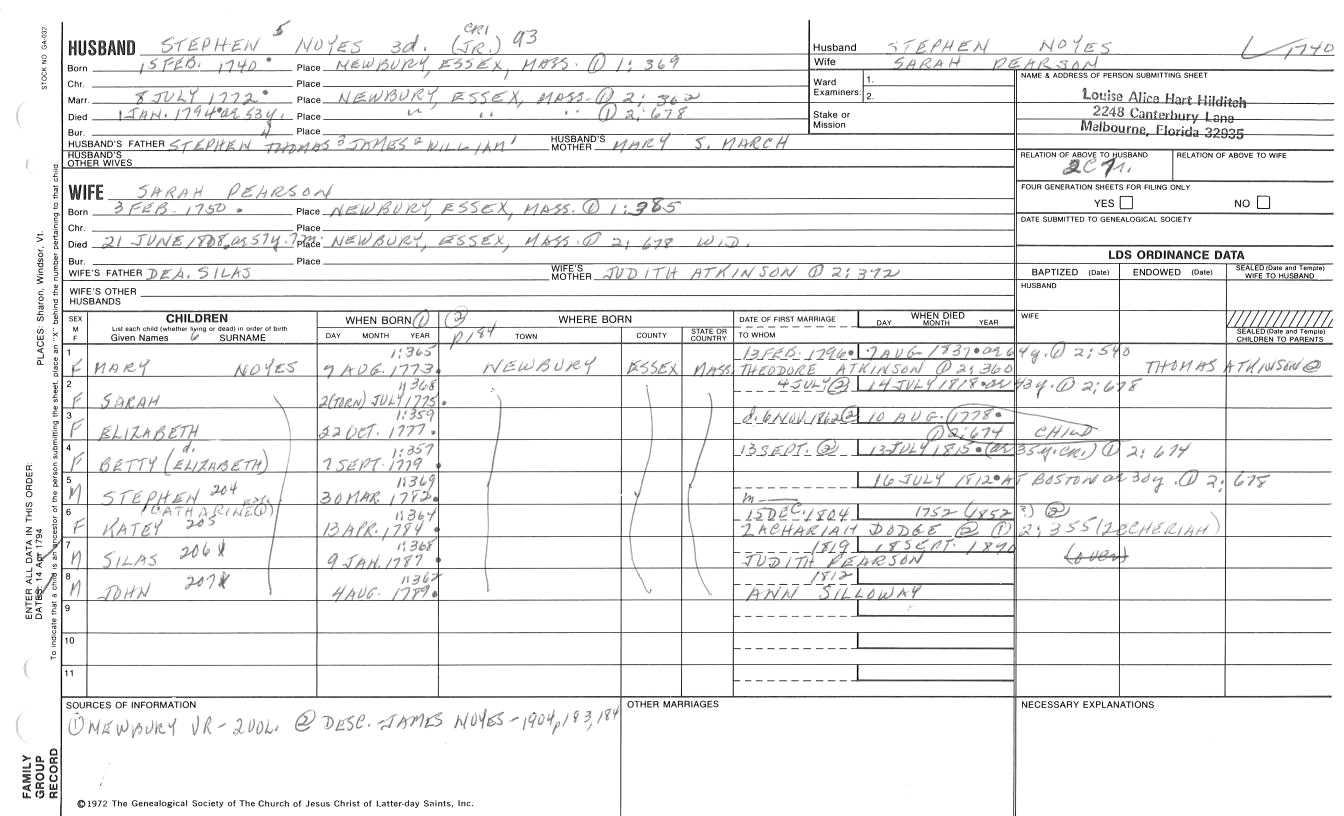 STOCK NO. GA-032
HUSBAND STEPHEN 5 NOYES 3d. (JR.) CR1 93
Born 15 FEB. 1740 Place NEWBURY, ESSEX, MASS. ① 1:369
Chr. Place
Marr. 8 JULY 1772 Place NEWBURY, ESSEX, MASS. ① 2:362
Died 1 JAN. 1794 ae 53y. Place " " " ① 2:678
Bur. Place
HUSBAND'S FATHER STEPHEN 4 THOMAS 3 JAMES 2 WILLIAM 1 HUSBAND'S MOTHER MARY S. MARCH
HUSBAND'S OTHER WIVES
WIFE SARAH PEARSON
Born 3 FEB. 1750 Place NEWBURY, ESSEX, MASS. ① 1:385
Chr. Place
Died 21 JUNE 1808, ae 57y. 7m. Place NEWBURY, ESSEX, MASS. ① 2:678 WID.
Bur. Place
WIFE'S FATHER DEA. SILAS WIFE'S MOTHER JUDITH ATKINSON ① 2:372
WIFE'S OTHER HUSBANDS
Husband STEPHEN NOYES 1740
Wife SARAH PEARSON
Ward Examiners: 1. 2.
Stake or Mission
NAME & ADDRESS OF PERSON SUBMITTING SHEET
Louise Alice Hart Hilditch
2248 Canterbury Lane
Melbourne, Florida 32935
RELATION OF ABOVE TO HUSBAND RELATION OF ABOVE TO WIFE
FOUR GENERATION SHEETS FOR FILING ONLY
YES NO
DATE SUBMITTED TO GENEALOGICAL SOCIETY
LDS ORDINANCE DATA
BAPTIZED (Date) ENDOWED (Date) SEALED (Date and Temple) WIFE TO HUSBAND
HUSBAND
WIFE
SEALED (Date and Temple) CHILDREN TO PARENTS
SEX M F CHILDREN WHEN BORN ① ② p184 WHERE BORN DATE OF FIRST MARRIAGE WHEN DIED
List each child (whether living or dead) in order of birth
Given Names 6 SURNAME DAY MONTH YEAR TOWN COUNTY STATE OR COUNTRY TO WHOM DAY MONTH YEAR
1 1:365 13 FEB. 1796 7 AUG. 1837 ae 64y. ① 2:540
F MARY NOYES 9 AUG. 1773 NEWBURY ESSEX MASS. THEODORE ATKINSON ① 2:360 THOMAS ATKINSON ②
2 1:368 4 JULY ② 14 JULY 1818 ae 43y. ① 2:678
F SARAH 2(TORN) JULY 1775
3 1:359 d. 6 NOV. 1862 ② 10 AUG. 1778
F ELIZABETH 22 OCT. 1777 ① 2:674 CHILD
4 d. 1:357 13 SEPT. ② 13 JULY 1815 (ae 35y. CR1) ① 2:674
F BETTY (ELIZABETH) 7 SEPT. 1779
5 1:369 16 JULY 1812 AT BOSTON ae 30y. ① 2:678
M STEPHEN 204 30 MAR. 1782 m
6 (CATHARINE ①) 1:364 15 DEC. 1804 1752 (1852?) ②
F KATEY 205 13 APR. 1784 ZACHARIAH DODGE ② ① 2:355 (ZECHERIAH)
7 1:368 1819 18 SEPT. 1870 (over)
M SILAS 206 9 JAN. 1787 JUDITH PEARSON
8 1:362 1812
M JOHN 207 4 AUG. 1789 ANN SILLOWAY
9
10
11
SOURCES OF INFORMATION
① NEWBURY VR - 2 VOL. ② DESC. JAMES NOYES - 1904, p183, 184
OTHER MARRIAGES
NECESSARY EXPLANATIONS
©1972 The Genealogical Society of The Church of Jesus Christ of Latter-day Saints, Inc.
ENTER ALL DATA IN THIS ORDER:
DATES: 14 Apr 1794
PLACES: Sharon, Windsor, Vt.
To indicate that a child is an ancestor of the person submitting the sheet, place an "X" behind the number pertaining to that child.
FAMILY GROUP RECORD